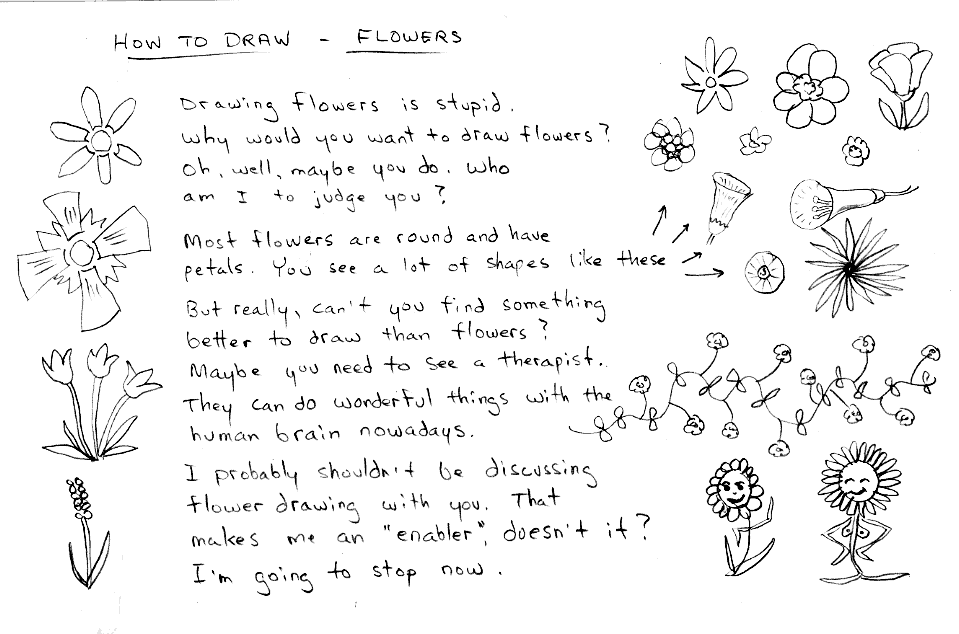 HOW TO DRAW - FLOWERS
Drawing flowers is stupid.
Why would you want to draw flowers?
Oh, well, maybe you do. Who
am I to judge you?
Most flowers are round and have
petals. You see a lot of shapes like these
But really, can't you find something
better to draw than flowers?
Maybe you need to see a therapist.
They can do wonderful things with the
human brain nowadays.
I probably shouldn't be discussing
flower drawing with you. That
makes me an "enabler", doesn't it?
I'm going to stop now.